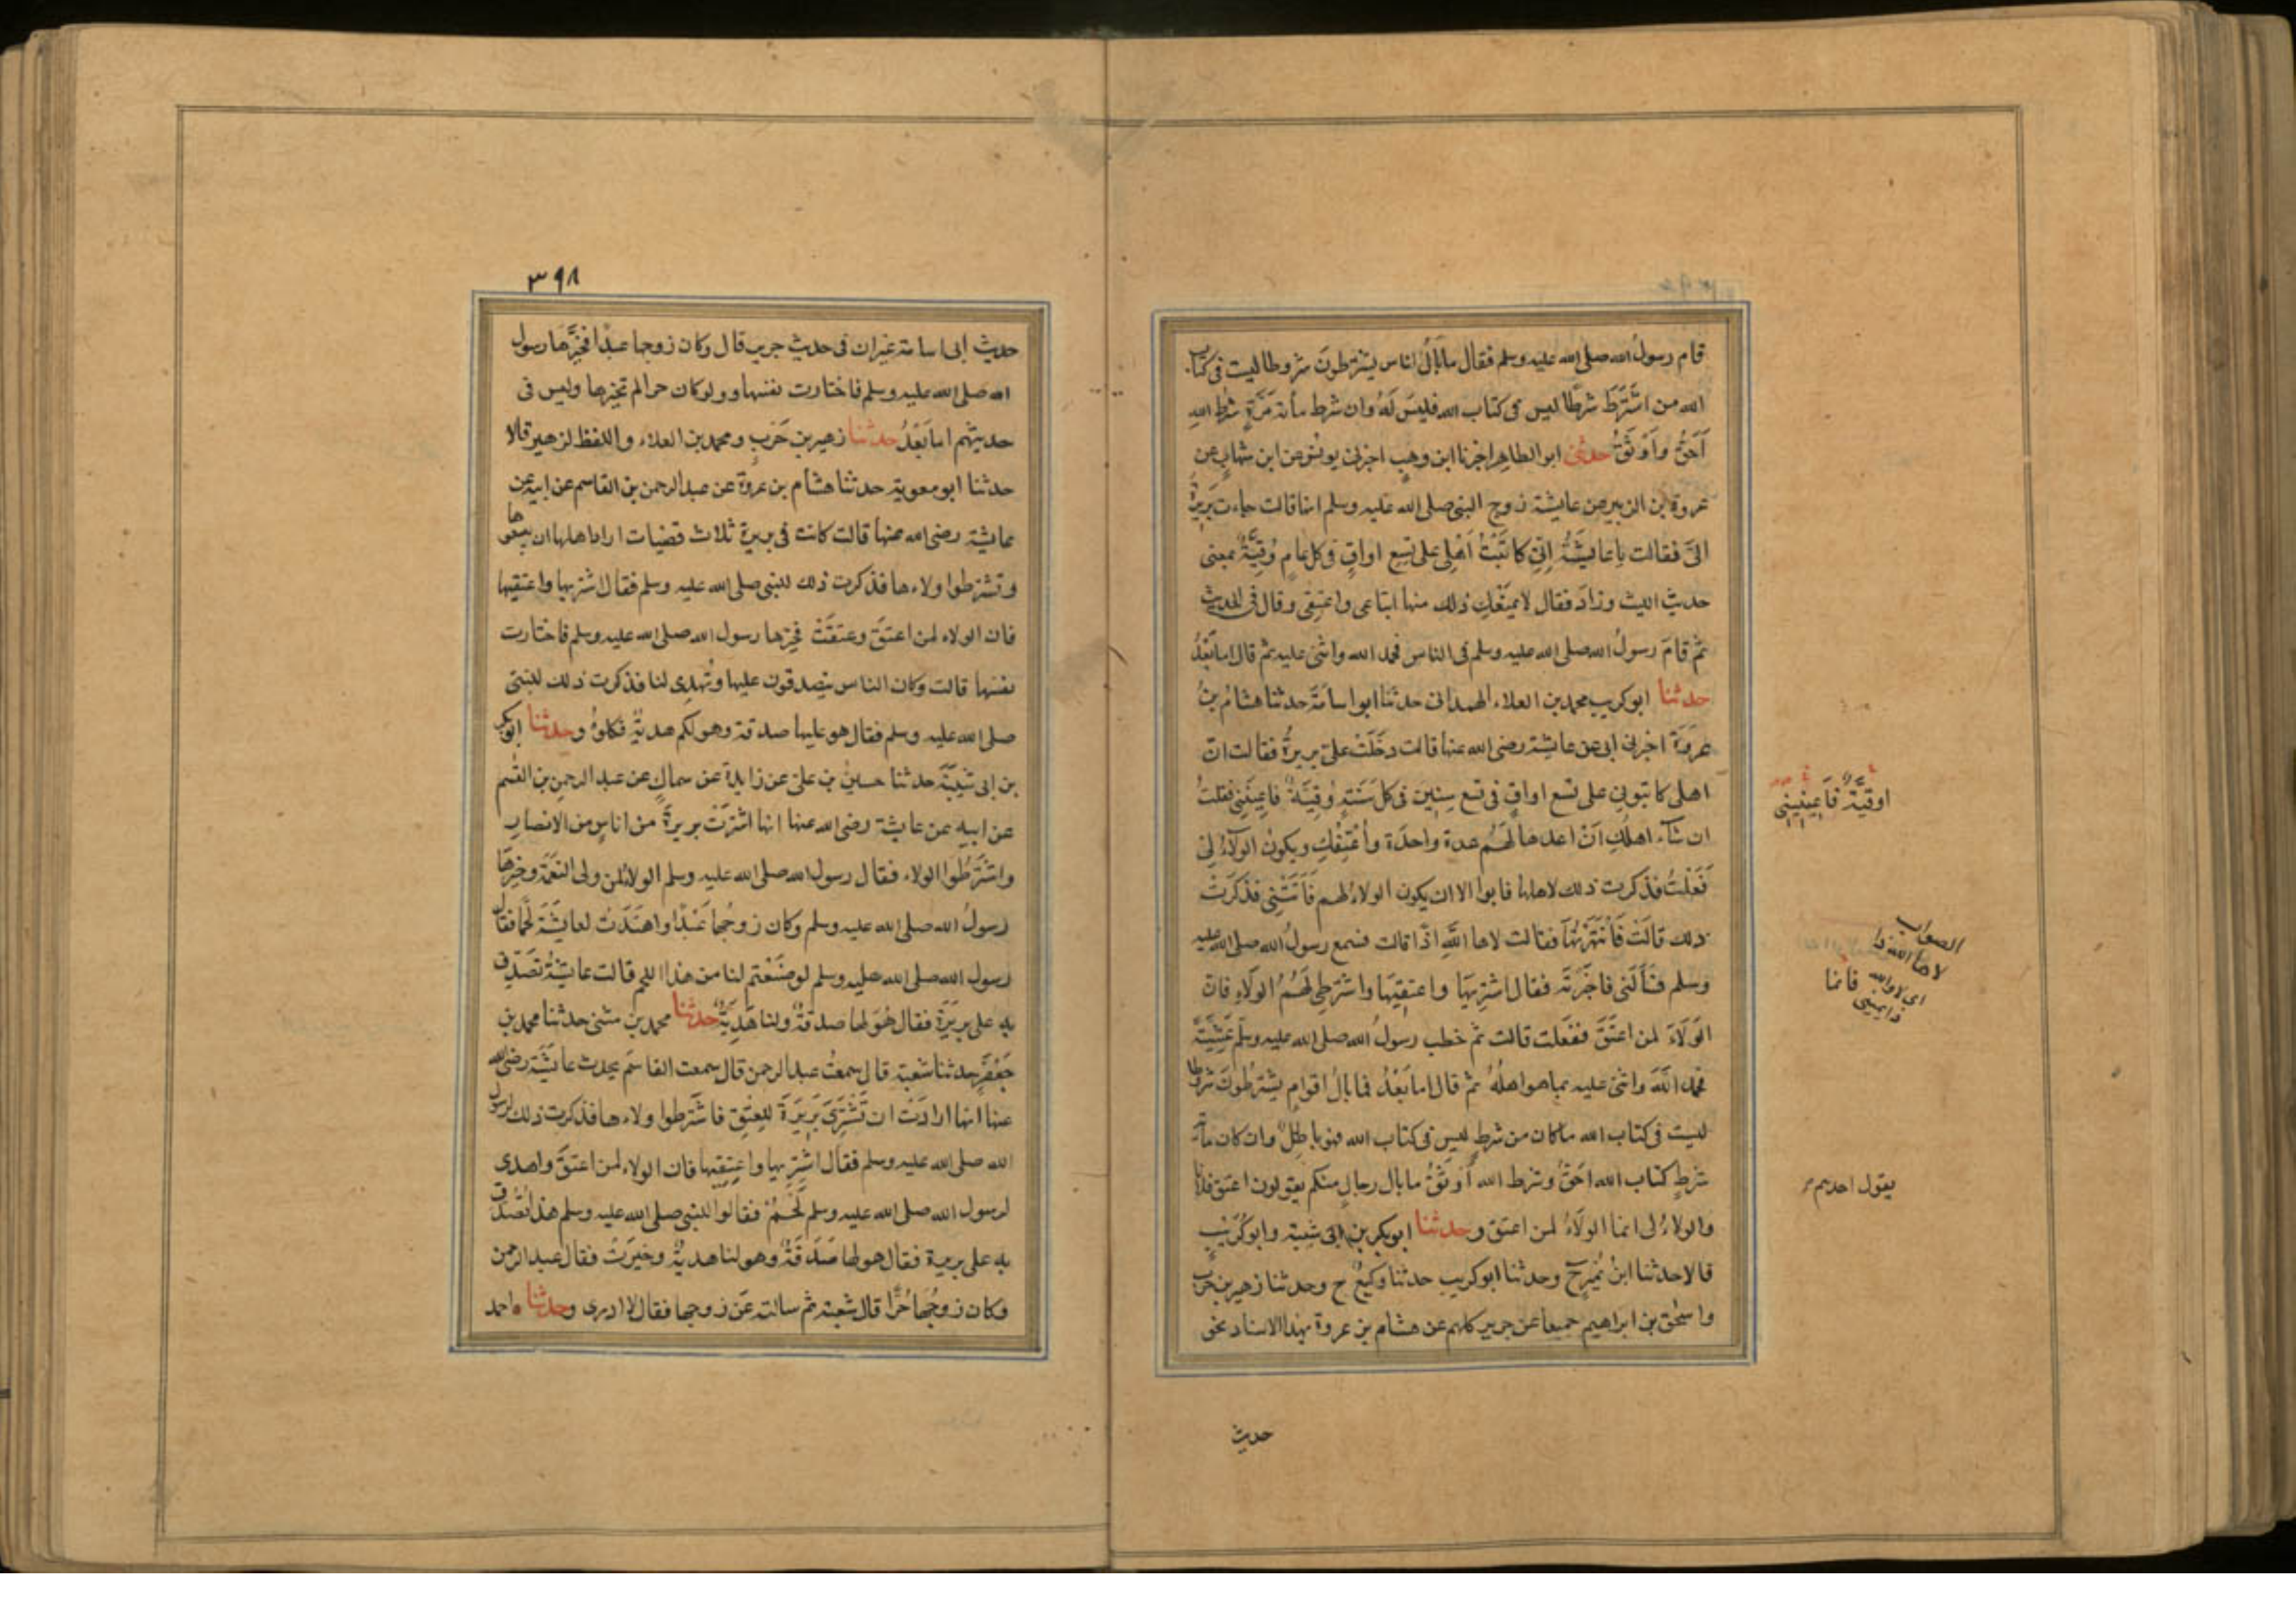 قام رسولُ الله صلى الله عليه وسلم فقال ما بَالُ اناس يشترطونَ شروطا ليست فى كتاب
الله من اشْتَرَطَ شرطًا ليس فى كتاب الله فليسَ لَهُ وان شرط مأنة مَرَّةٍ شرْط اللهِ
أَحَقُّ وأَوْثَقُ حدثنى ابو الطاهر اخبرنا ابن وهبٍ اخبرنى يونس عن ابن شهابٍ عن
عروة بن الزبير عن عايشة زوج النبى صلى الله عليه وسلم انها قالت جاءت بَرِيرَةُ
الىَّ فقالت يا عايشَةُ اِنّى كاتَبْتُ اَهْلِى على تِسِع اواقٍ فى كل عامٍ وُقِيَّةٌ بمعنى
حديث الليث وزادَ فقال لا يمنَعُكِ ذلك منها ابتاعى واعتِقِى وقال فى الحديث
ثم قامَ رسولُ الله صلى الله عليه وسلم فى الناس فحمد الله واثنى عليه ثم قال اما بَعْدُ
حدثنا ابو كريب محمد بن العلاء الهمدانى حدثنا ابو اسامَةَ حدثنا هشامُ بنُ
عروَةَ اخبرنى ابى عن عايشة رضى الله عنها قالت دخَلَتْ علىّ بريرةُ فقالت انّ
اهلى كاتبونى على تسع اواقٍ فى تسع سِنِينَ فى كل سَنَةٍ وُقِيَّةٌ فاعِينِينى فقلتُ
ان شآء اهلُكِ اَنْ اعدها لَهُم عدة واحدَة وأُعْتِقُكِ ويكونُ الوَلآءُ لِى
فَعَلْتُ فذكرت ذلك لاهلها فابوا الا ان يكون الولاءُ لهم فَاَتَتْنِى فذكَرَتْ
ذلك قالَتْ فَانْتَهَرْتُهَا فقالت لاها اللهِ اذًا قالت فسمع رسولُ الله صلى الله عليه
وسلم فسَأَلَنى فاخبَرْتُه فقال اشتَرِيَها واعتقِيَها واشترطِى لَهُمُ الوَلَاءَ فانّ
الوَلَاءَ لمن اعتَقَ ففعلت قالت ثم خطب رسولُ الله صلى الله عليه وسلم عَشِيَّةً
فحمد اللهَ واثنى عليه بما هو اهلُهُ ثم قال اما بَعْدُ فما بالُ اقوامٍ يشترطُونَ شروطًا
ليست فى كتاب الله ما كان من شرطٍ ليس فى كتاب الله فهو باطِلٌ وان كان مأة
شرطٍ كتاب الله احَقُّ وشرط الله أَوْثَقُ ما بال رجالٍ منكم يقولون اعتق فلانا
والولاءُ لى انما الوَلَاءُ لمن اعتق وحدثنا ابو بكر بن ابى شيبة وابو كُرَيْبٍ
قالا حدثنا ابنُ نُمَيرٍ ح وحدثنا ابو كريب حدثنا وكيعٌ ح وحدثنا زهير بن حرب
واسحٰق بن ابراهيم جميعا عن جرير كلهم عن هشام بن عروة بهذا الاسناد نحو
اوقيَّة فَأعِينِينِى
الصواب
لاها الله ذا
اى لا والله
فانما
ذا يمينى
يقول احدهم
حديث
٣٩٨
حديث ابى اسامة غير ان فى حديث جرير قال وكان زوجها عبدًا فخيَّرَها رسول
الله صلى الله عليه وسلم فاختارت نفسها وولو كان حرا لم يخيرها وليس فى
حديثهم اما بَعْدُ حدثنا زهير بن حَرْبٍ ومحمد بن العلاء واللفظ لزهير قالا
حدثنا ابو معوية حدثنا هشام بن عروة عن عبد الرحمن بن القاسم عن ابيه عن
عايشة رضى الله عنها قالت كانت فى بريرة ثلاث قضيات اراد اهلها ان يبيعوها
وتشترطوا ولاءها فذكرت ذلك للنبى صلى الله عليه وسلم فقال اشتريها واعتقيها
فان الولاء لمن اعتَقَ وعتقَتْ فخيرها رسول الله صلى الله عليه وسلم فاختارت
نفسها قالت وكان الناس يتصدقون عليها وتُهدِى لنا فذكرت ذلك للنبى
صلى الله عليه وسلم فقال هو عليها صدقة وهو لكم هديةٌ فكلوهُ وحدثنا ابو بكر
بن ابى شَيْبَة حدثنا حسين بن على عن زايدة عن سماكٍ عن عبد الرحمن بن القسم
عن ابيه عن عايشة رضى الله عنها انها اشترَتْ بريرةً من اناسٍ من الانصارِ
واشتَرَطُوا الولاء فقال رسول الله صلى الله عليه وسلم الولاءُ لمن ولى النعمَةَ وخيرها
رسولُ الله صلى الله عليه وسلم وكان زوجُها عَبْدًا واهتَدَتْ لعايشَةَ لَحْمًا فقال
رسول الله صلى الله عليه وسلم لو صَنَعْتم لنا من هذا اللحم قالت عايشَةُ تُصُدّق
به على بريَرَة فقال هُوَ لها صدقةٌ ولنا هَدِيَّةٌ حدثنا محمد بن مثنى حدثنا محمد بن
جَعْفَرٍ حدثنا شعبة قال سمعتُ عبد الرحمن قال سمعت القاسمَ يحدث عايشَةَ رضى الله
عنها انها ارادَتْ ان تَشْتَرِىَ بَرِيرَةَ للعِتْقِ فاشْتَرطوا ولاءها فذكرت ذلك لرسول
الله صلى الله عليه وسلم فقال اشْتَرِيها واعْتِقِيها فان الولاء لمن اعتقَ واهدى
لرسول الله صلى الله عليه وسلم لَحْمٌ فقالوا للنبى صلى الله عليه وسلم هذا تُصُدّق
به على بريرة فقال هو لها صَدَقَةٌ وهو لنا هديةٌ وخيرَتْ فقال عبد الرحمن
وكان زوجُهَا حُرًّا قال شعبة ثم سالته عَن زوجها فقال لا ادرى وحدثنا احمد